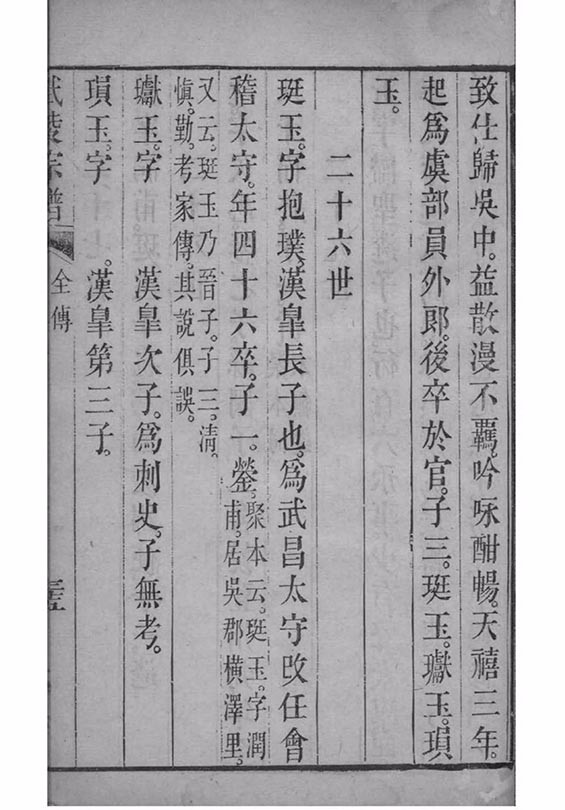 致仕歸吳中。益散漫不羈。吟咏酣暢。天禧三年。
起爲虞部員外郎。後卒於官。子三。珽玉。瓛玉。瑣
玉。
二十六世
珽玉。字抱璞。漢臯長子也。爲武昌太守。改任會
稽太守。年四十六卒。子一。鎣。聚本云。珽玉。字潤
甫。居吳郡橫澤里。
又云。珽玉乃晉子。子三。淸。
愼。勤。考家傳。其說俱誤。
瓛玉。字　漢臯次子。爲刺史。子無考。
瑣玉。字　。漢臯第三子。
宗譜
全傳